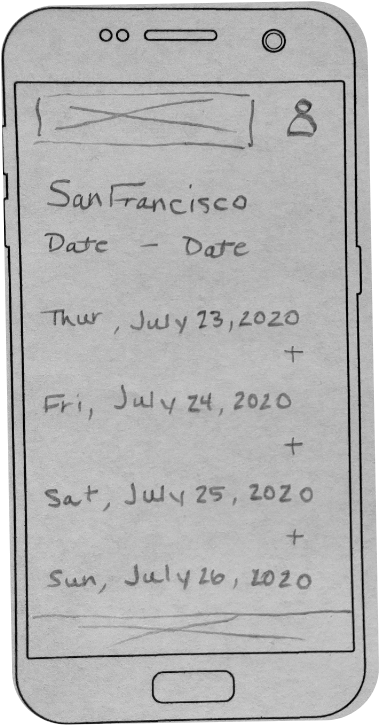 San Francisco
Date - Date
Thur, July 23, 2020
+
Fri, July 24, 2020
+
Sat, July 25, 2020
+
Sun, July 26, 2020